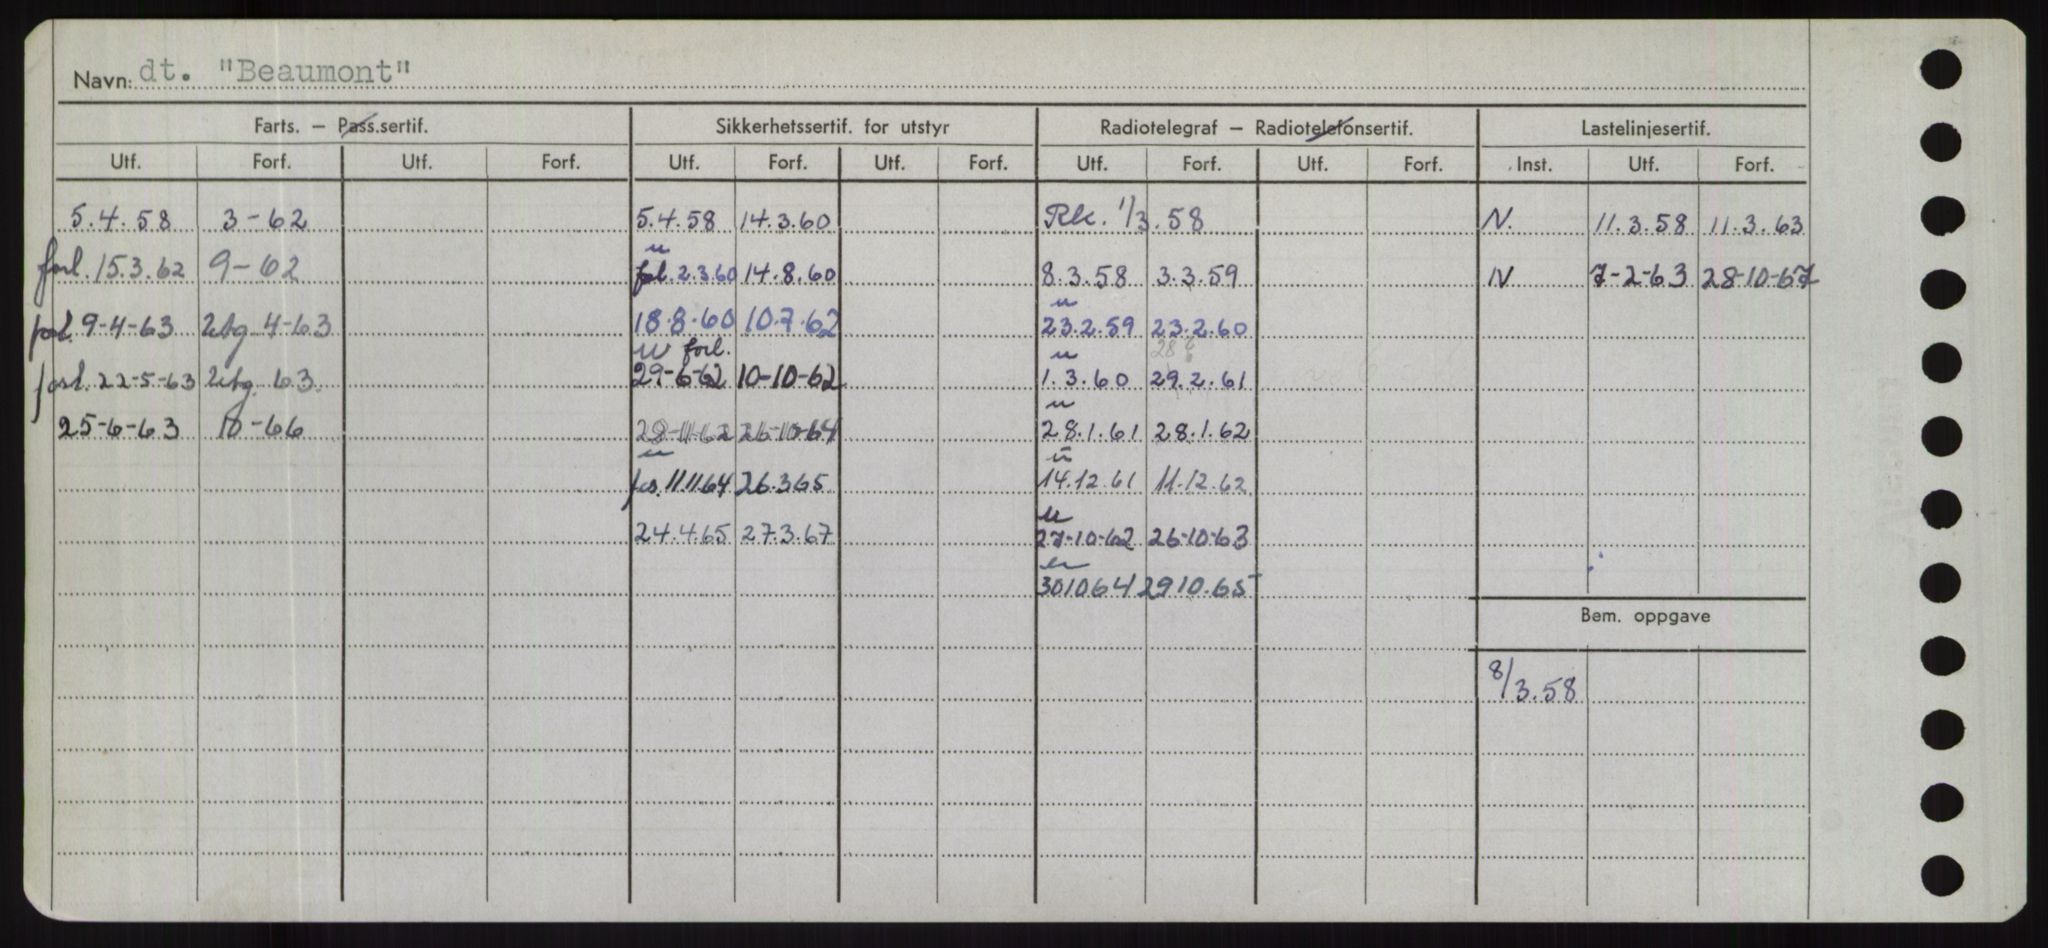 Navn: dt. "Beaumont"
Farts. – Pass.sertif. Sikkerhetssertif. for utstyr Radiotelegraf – Radiotelefonsertif. Lastelinjesertif.
Utf. Forf. Utf. Forf. Utf. Forf. Utf. Forf. Utf. Forf. Utf. Forf. Inst. Utf. Forf.
5.4.58 3-62 5.4.58 14.3.60 Rk. 1/3.58 N. 11.3.58 11.3.63
u
forl. 15.3.62 9-62 fol. 2.3.60 14.8.60 8.3.58 3.3.59 N 7-2-63 28-10-67
u
forl. 9-4-63 utg 4-63 18.8.60 10.7.62 23.2.59 23.2.60
u forl. u
forl. 22-5-63 utg. 63 29-6-62 10-10-62 1.3.60 29.2.61
u
25-6-63 10-66 28-11-62 26-10-64 28.1.61 28.1.62
u u
11.11.64 26.3.65 14.12.61 11.12.62
u
24.4.65 27.3.67 27-10-62 26-10-63
u
30 10 64 29 10.65
Bem. oppgave
8/3.58